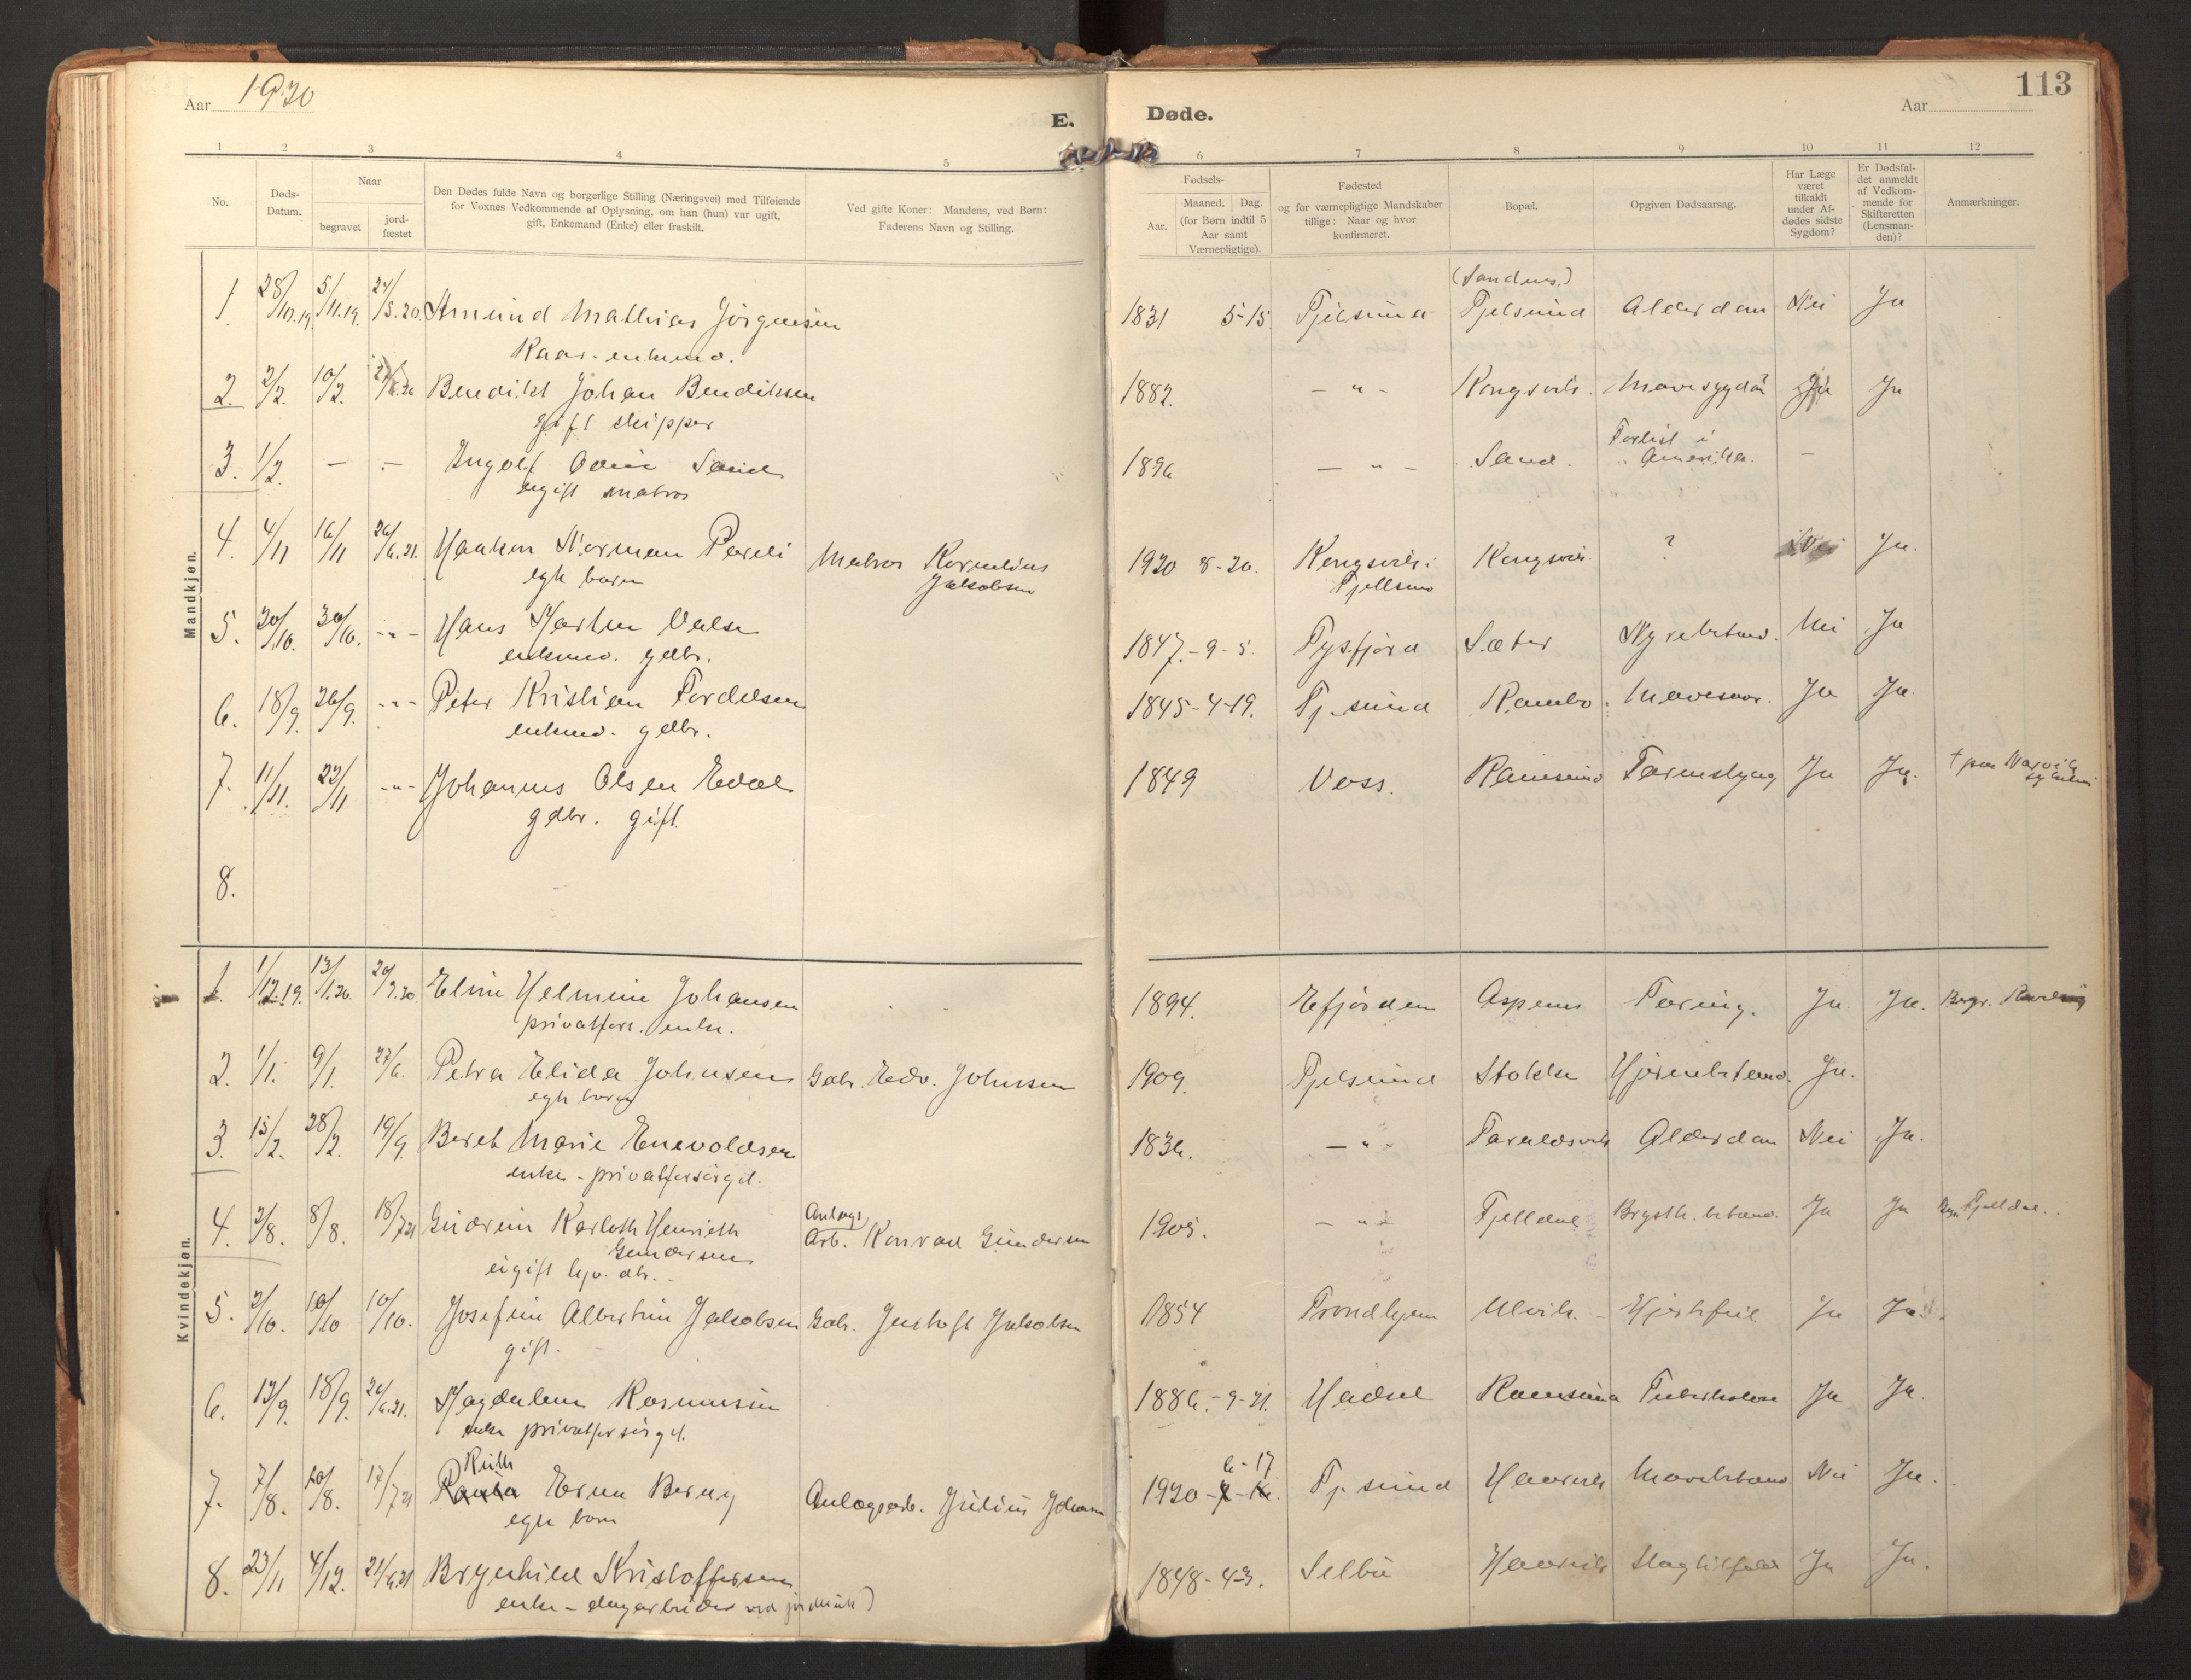 Aar 1920
E.
Døde.
Aar
113
1 2 3 4 5 6 7 8 9 10 11 12
No.
Døds-
Datum.
Naar
begravet
jord-
fæstet
Den Dødes fulde Navn og borgerlige Stilling (Næringsvei) med Tilføiende
for Voxnes Vedkommende af Oplysning, om han (hun) var ugift,
gift, Enkemand (Enke) eller fraskilt.
Ved gifte Koner: Mandens, ved Børn:
Faderens Navn og Stilling.
Fødsels-
Aar.
Maaned. Dag.
(for Børn indtil 5
Aar samt
Værnepligtige).
Fødested
og for værnepligtige Mandskaber
tillige: Naar og hvor
konfirmeret.
Bopæl.
Opgiven Dødsaarsag.
Har Læge
været
tilkaldt
under Af-
dødes sidste
Sygdom?
Er Dødsfal-
det anmeldt
af Vedkom-
mende for
Skifteretten
(Lensman-
den)?
Anmærkninger.
Mandkjøn.
(Sandnes.)
1. 28/10.19. 5/11.19. 24/5.20. Amund Mathias Jørgensen 1831 5-15 Tjelsund Tjelsund Alderdom Nei Ja
Kaar-enkmd.
2. 2/2. 10/2. Bendikt Johan Bendiksen 1882. — " - Kongsvik. Mavesygd. Ja Ja
gift skipper
3. 1/2. — — Ingolf Odin Sand 1896 — " — Sand. Forlist i
Amerika. —
ugift matros
4. 4/11 16/11 26/6.21. Haakon Norman Pareli Matros Kornelius
Jakobsen 1920 8-20. Kongsvik i
Tjellsund Kongsvik. ? Nei Ja.
egte barn
5. 20/10. 30/10. -"- Hans Martin Olsen 1847.-9-5. Tysfjord Sæter Nyrebetend. Nei Ja
enkmd. gdbr.
6. 18/9. 26/9. -"- Peter Kristian Tordelsen 1845-4-19. Tj.sund Rambo. Mavesaar. Ja Ja
enkmd. gdbr.
7. 11/11. 22/11 -"- Johannes Olsen Edal 1849 Voss. Ramsund Tarmslyng Ja Ja. † paa Narvik
sykehus
gdbr. gift.
8.
Kvindekjøn.
1. 1/12.19. 13/1.20. 20/9.20. Eline Helmine Johansen 1894. Efjorden Aspenes Tæring. Ja. Ja. Begr.
privatfors. enke.
2. 1/1. 9/1. 27/6. Petra Elida Johnsen Gabr. Edv. Johnsen 1909. Tjelsund Stokke Hjernebetend. Ja.
egte barn
3. 15/2. 28/2. 19/9. Beret Marie Enevoldsen 1836. — " - Taraldsvik Alderdom Nei Ja.
enke - privatforsørget.
4. 2/8. 8/8. 18/7.21 Gudrun Karloth Henrieth
Gundersen Anlægs
Arb. Konrad Gundersen 1905. — " — Fjelldal Brysth. betend. Ja Ja Fjelldal.
eigift
5. 2/10. 10/10 10/10. Josefine Albertine Jakobsen Gdbr. Gustaf Jakobsen 1854 Trondhjem Ulvik. Hjertefeil Ja Ja.
gift.
6. 13/9. 18/9. 26/6.21. Magdalene Rasmussen 1886.-9-21. Hadsel Ramsund Tuberkulose Ja Ja.
enke privatforsørget.
7. 7/8. 10/8. 17/7.21 Ruth
Erna Berny Anlægsarb. Julius Johansen 6-17
1920 Tj.sund Haavik Mavebetend. Nei Ja.
egte barn
8. 23/11 4/12. 21/6.21 Brynhild Kristoffersen 1848-4-3. Selbu Haavik Slagtilfæld. Ja Ja.
enke - dagarbeider ved